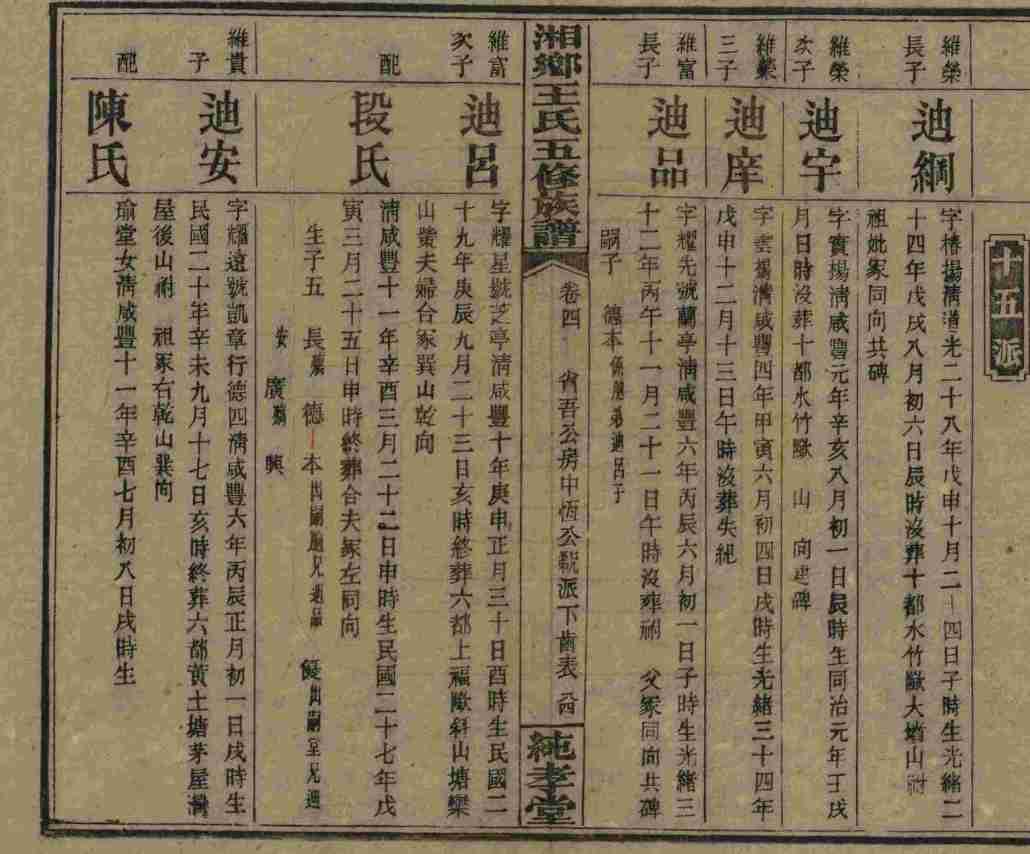 十五派
維榮
長子
迪綱
字椿揚清道光二十八年戊申十月二十四日子時生光緒二
十四年戊戌八月初六日辰時沒葬十都水竹壪大塘山祔
祖妣冢同向共碑
維榮
次子
迪宇
字寶揚清咸豐元年辛亥八月初一日辰時生同治元年壬戌
月日時沒葬十都水竹壪 山 向建碑
維榮
三子
迪庠
字雲揚清咸豐四年甲寅六月初四日戌時生光緒三十四年
戊申十二月十三日午時沒葬失紀
維富
長子
迪品
字耀先號蘭亭清咸豐六年丙辰六月初一日子時生光緒三
十二年丙午十一月二十一日午時沒葬祔 父冢同向共碑
嗣子 德本係胞弟迪呂子
湘鄉王氏五修族譜
卷四 省吾公房中恆公貌派下齒表
純孝堂
維富
次子
迪呂
字耀星號芝亭清咸豐十年庚申正月三十日酉時生民國二
十九年庚辰九月二十三日亥時終葬六都上福壪斜山塘欒
山塋夫婦合冢巽山乾向
配
段氏
清咸豐十一年辛酉三月二十二日申時生民國二十七年戊
寅三月二十五日申時終葬合夫冢左同向
生子五 長 德 本出嗣胞兄迪品 優出嗣堂兄迪
安 廣 興
維貴
子
迪安
字耀遠號凱章行德四清咸豐六年丙辰正月初一日戌時生
民國二十年辛未九月十七日亥時終葬六都黃土塘茅屋灣
屋後山祔 祖冢右乾山巽向
配
陳氏
瑜堂女清咸豐十一年辛酉七月初八日戌時生